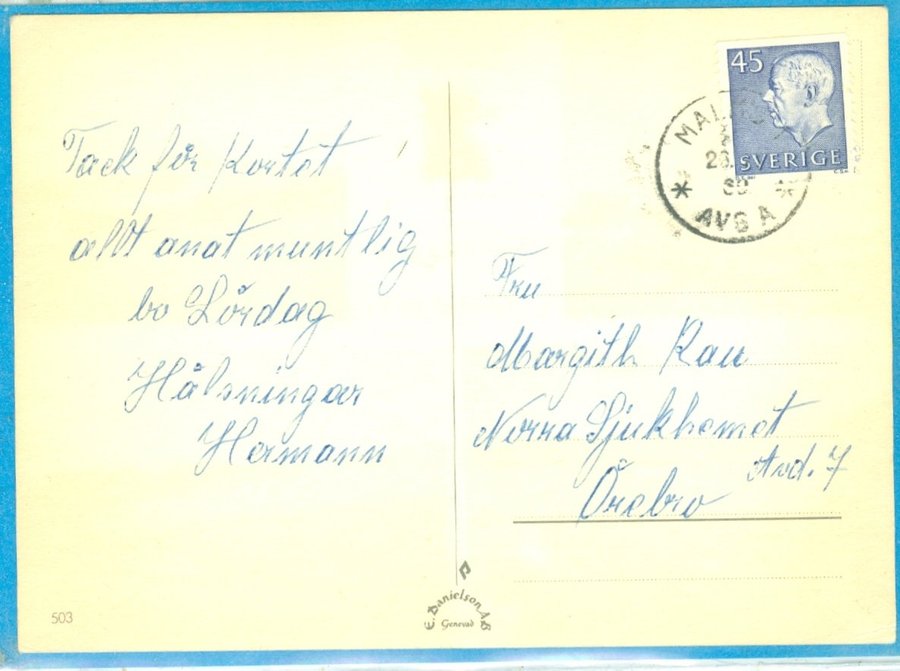 Tack för Kortet
allt anat muntlig
bo Lördag
Hälsningar
Hermann
45
SVERIGE
AVG A
Fru
Margith Rau
Norra Sjukhemet
Avd. 7
Örebro
503
E. Danielson AB
Genevad